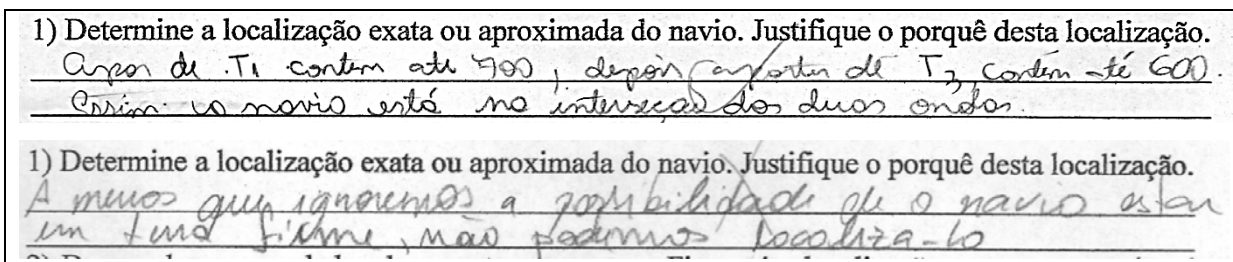 1) Determine a localização exata ou aproximada do navio. Justifique o porquê desta localização.
de T1 contem até 700, depois a partir de T2 contem até 600.
Assim o navio está na interseção das duas ondas.
1) Determine a localização exata ou aproximada do navio. Justifique o porquê desta localização.
A menos que ignoremos a possibilidade de o navio estar
em terra firme, não podemos localiza-lo